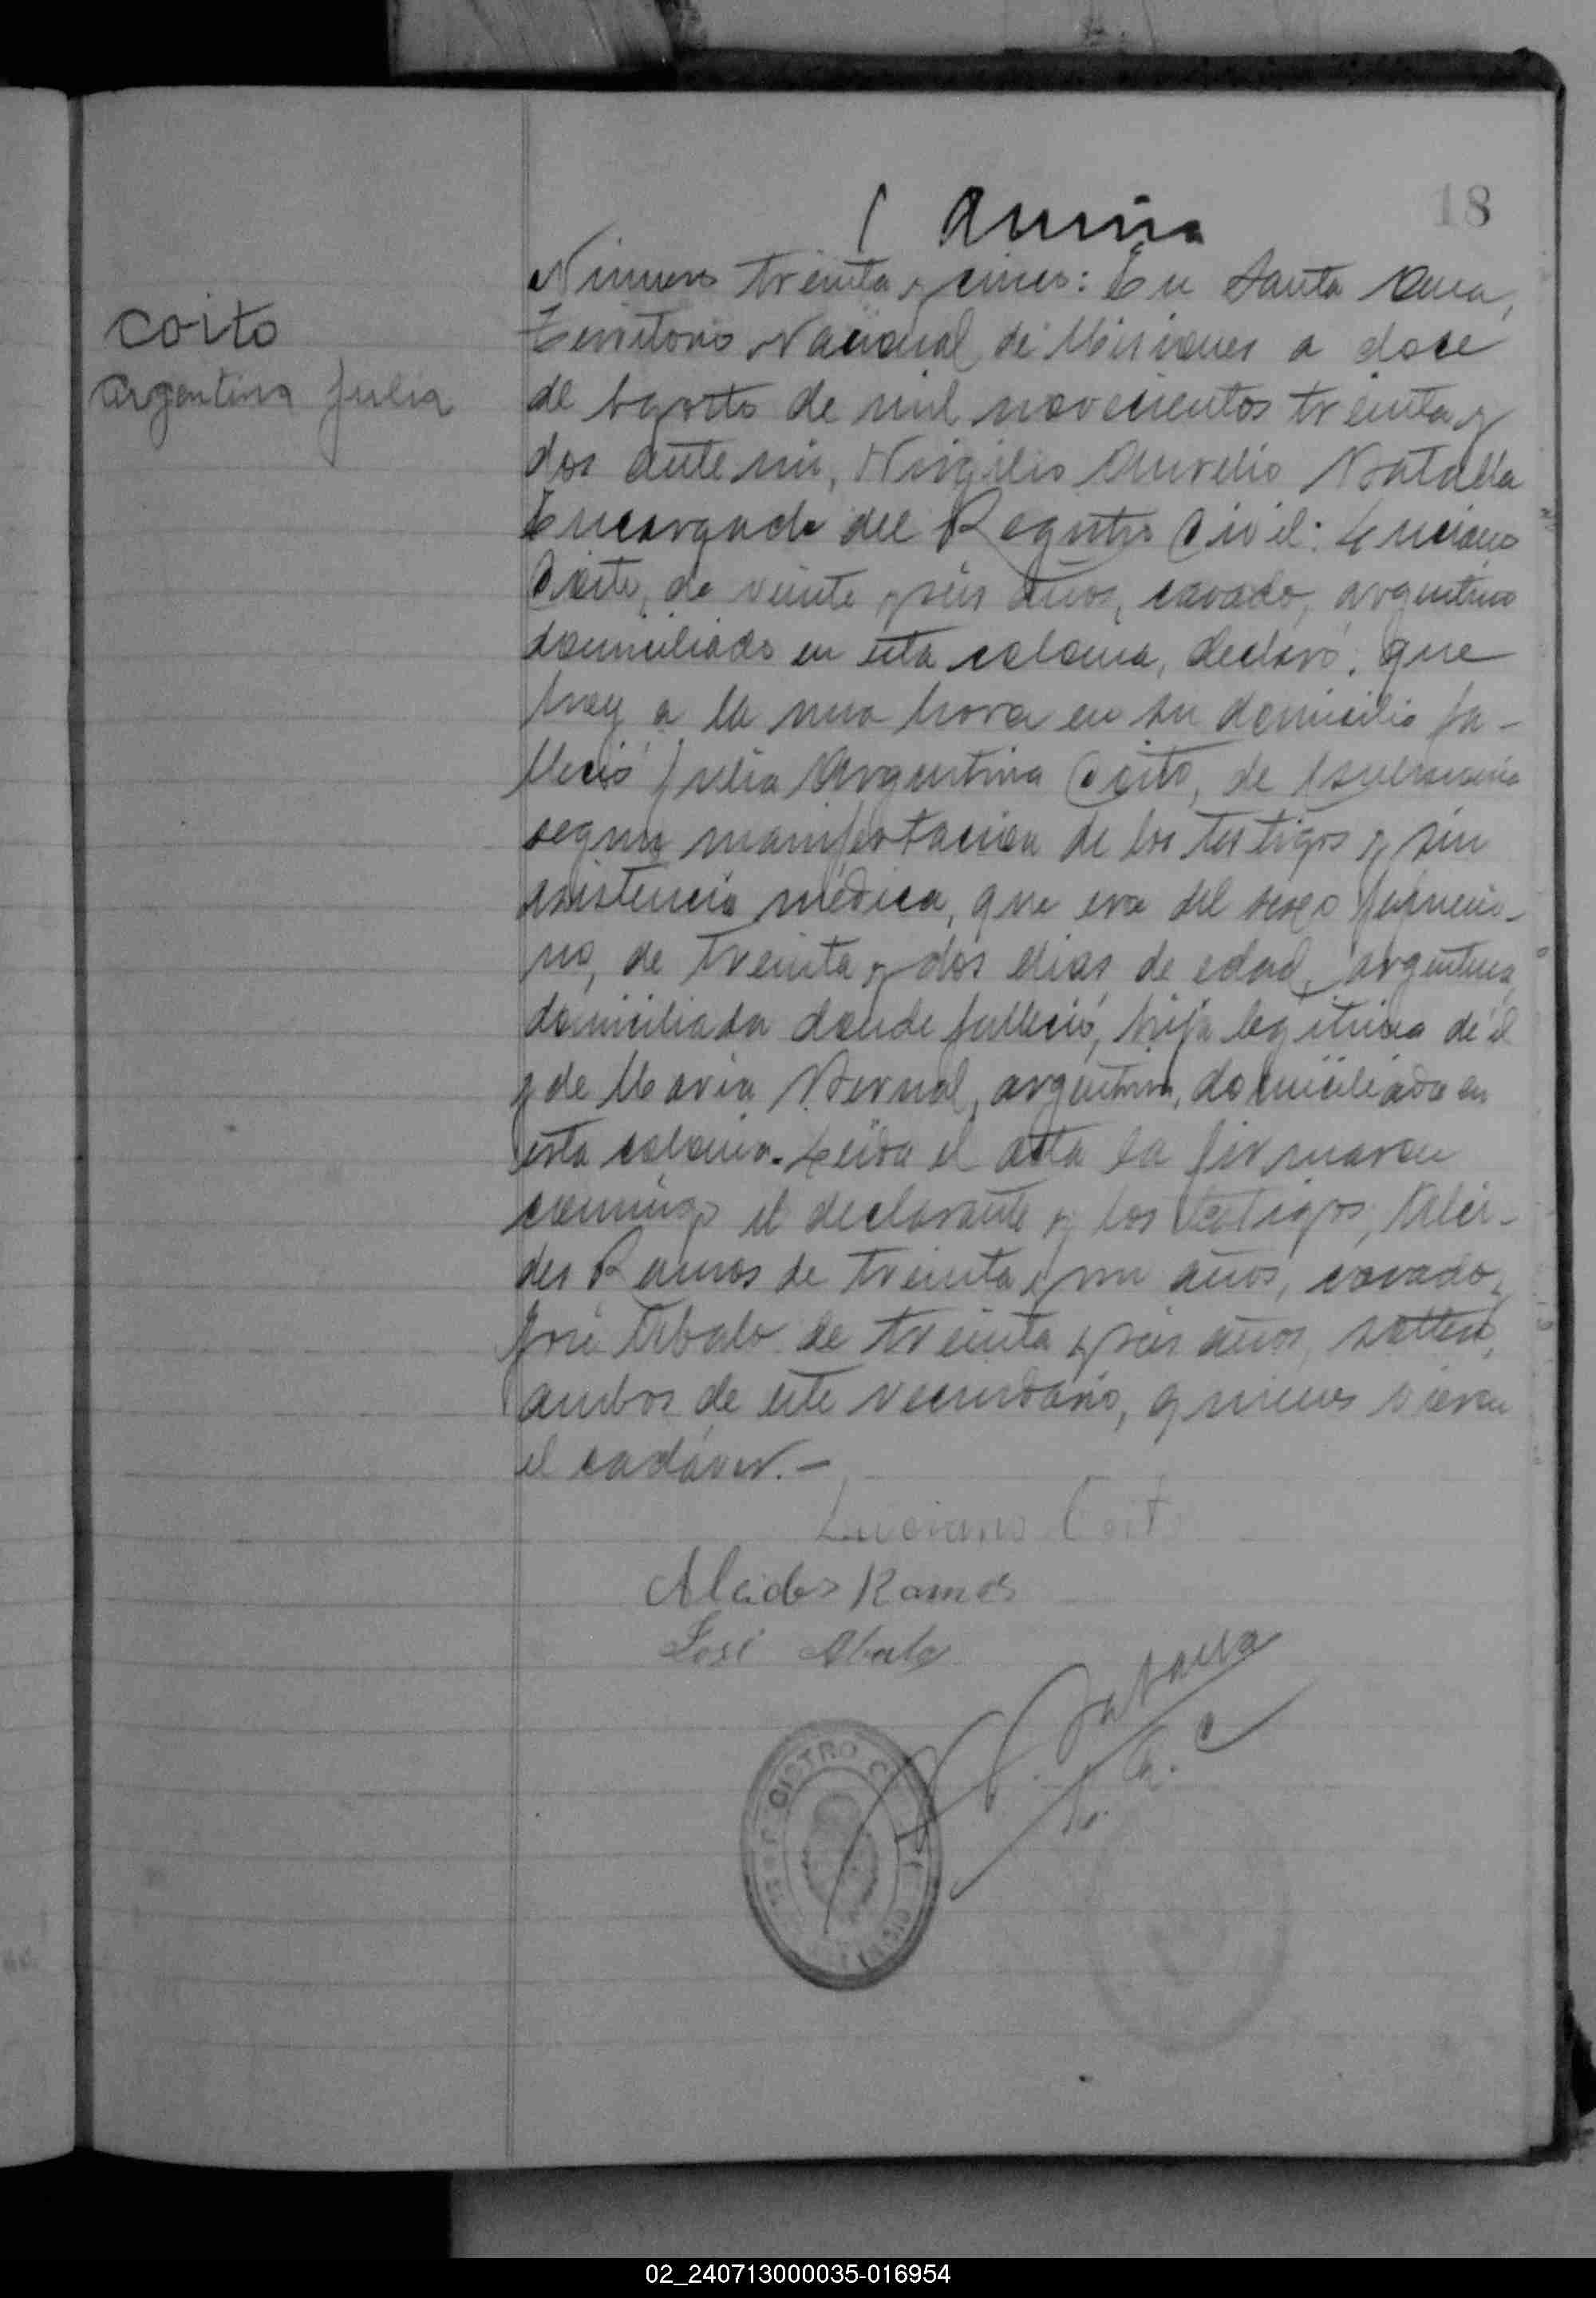 18
Coito
Argentina Julia
Número treinta y cinco: En Santa Ana,
Territorio Nacional de Misiones a doce
de Agosto de mil novecientos treinta y
dos ante mi, Virgilio Aurelio Batalla
Encargado del Registro Civil: Luciano
Coito, de veinte y seis años, casado, argentino
domiciliado en esta colonia, declaró: que
hoy a la una hora en su domicilio fa-
lleció Julia Argentina Coito, de
segun manifestacion de los testigos y sin
asistencia médica, que era del sexo femeni-
no, de treinta y dos dias de edad, argentina,
domiciliada donde falleció, hija legitima de él
y de Maria Bernal, argentina, domiciliada en
esta colonia. Leida el acta la firmaron
conmigo el declarante y los testigos, Alci-
des Ramos de treinta y un años, casado y
José Abalo de treinta y seis años, soltero,
ambos de este vecindario, quienes vieron
el cadáver.-
Luciano Coito
Alcides Ramos
José Abalo
Batalla
REGISTRO CIVIL
02_240713000035-016954